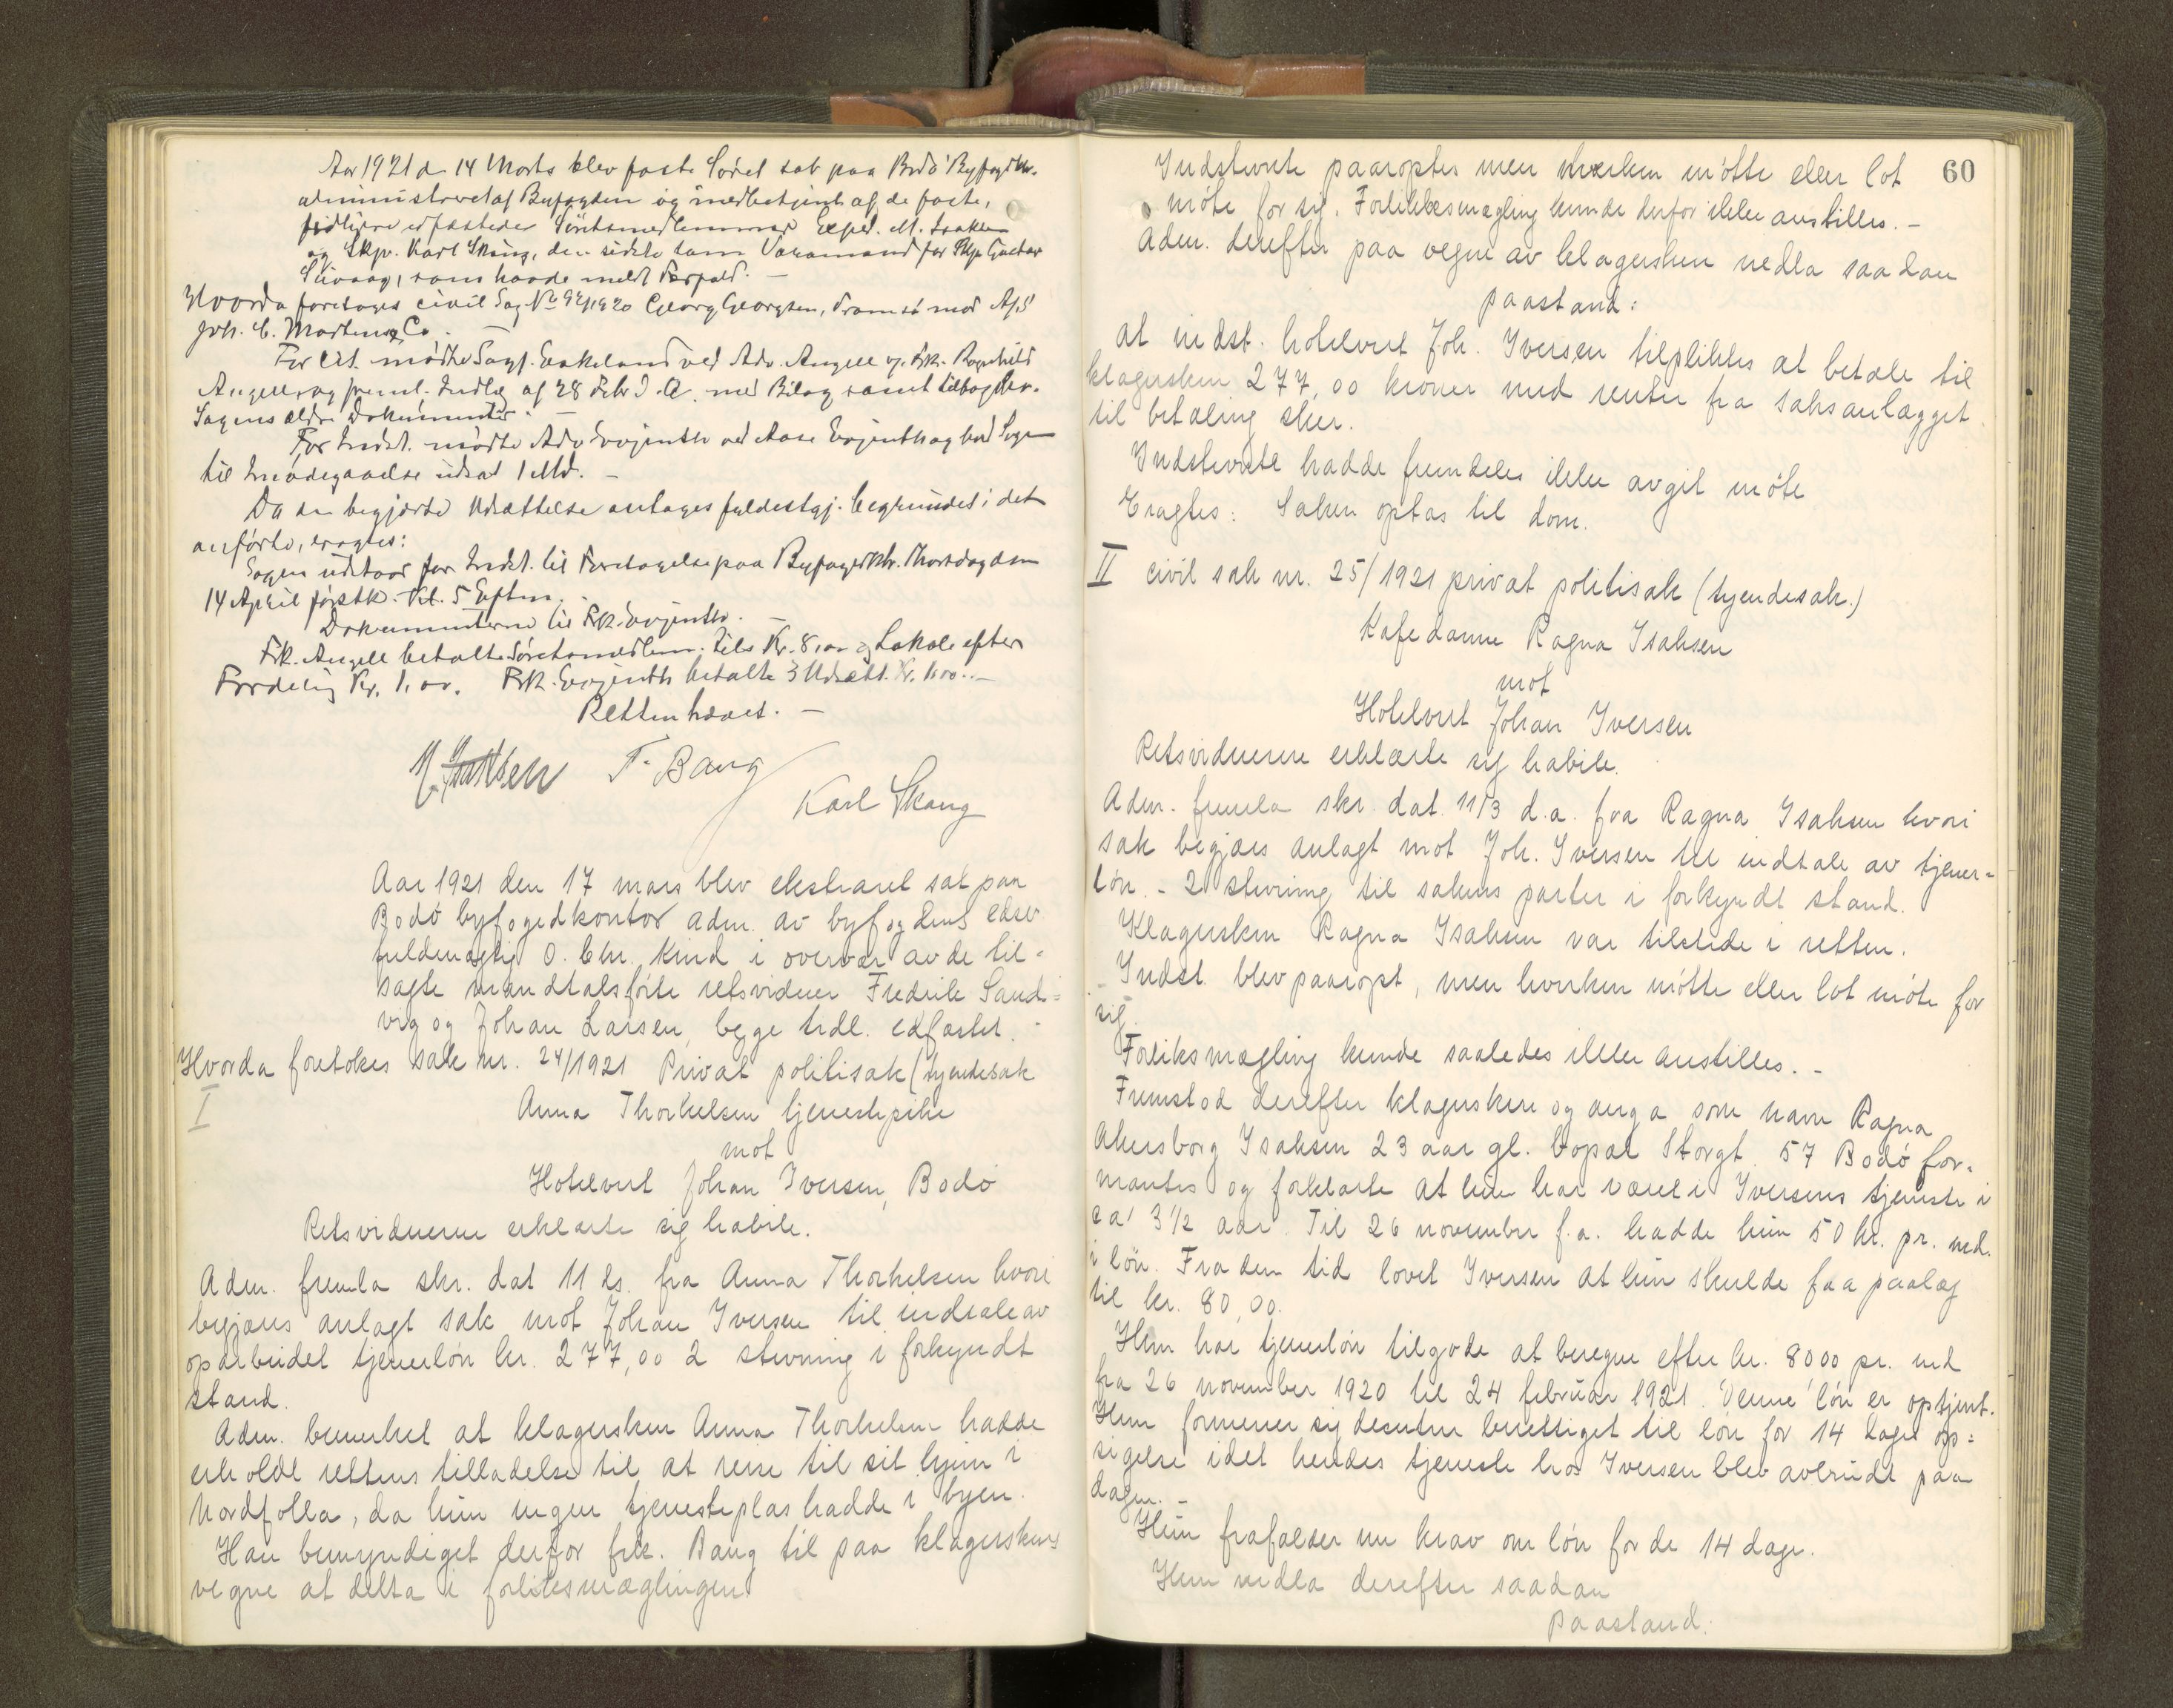 Aar 1921 d. 14 Marts blev faste Søret sat paa Bodö Byfogdktr.
administreret af Byfogden og medbetjent af de faste,
tidligere edfæstede Söretsmedlemmer Exped. M. Isaksen
og Skp. Karl Skaug, den sidste som Varamand for Skp. Gustav
som havde meldt Forfald. —
Hvorda foretages civil Sag No 92/1920 Georg Georgsen, Tromsö mod A/S
Joh. C. Martens & Co. —
For Cit. mödte Sagf. Eskeland ved Adv. Angell v. Frk. Ragnhild
Angell og freml. Indlæg af 28 Febr d. A. med Bilag samt tilbagelev.
Sagens ældre Dokumenter. —
For Indst. mödte Adv. Evjenth ved Aase Evjenth og bad Sagen
til Imödegaaelse udsat 1 Md. —
Da den begjærte Udsættelse antages fyldestgj. begrundet i det
anförte, eragtes:
Sagen udstaar for Indst. til Foretagelse paa Byfogedktr. Thorsdag den
14 April förstk. Kl. 5 Eftm.
Dokumenterne til Frk. Evjenth. —
Frk. Angell betalte Söretsmedlem. tils. Kr. 8,00 og Lokale efter
Fordeling Kr. 1,00. Frk. Evjenth betalte 3 Udsætt. Kr. 1,00. —
Retten hævet. —
M. Isaksen F. Bang
Karl Skaug
Aar 1921 den 17 mars blev ekstraret sat paa
Bodö byfogedkontor adm. av byfogdens edsv.
fuldmægtig O. Chr. Kind i overvær av de til-
sagte mandtalsförte retsvidner Fredrik Sand-
vig og Johan Larsen, begge tidl. edfæstet. -
Hvorda foretokes sak nr. 24/1921 Privat politisak (tyendesak
I
Anna Thorkelsen tjenestepike
mot
Hotelvert Johan Iversen, Bodö
Retsvidnerne erklærte sig habile.
Adm. fremla skr. dat 11 ds. fra Anna Thorkelsen hvori
begjæres anlagt sak mot Johan Iversen til indtale av
oparbeidet tjenerlön kr. 277,00 2 stevning i forkyndt
stand.
Adm. bemerket at klagersken Anna Thorkelsen hadde
erholdt rettens tilladelse til at reise til sit hjem i
Nordfolla, da hun ingen tjenesteplas hadde i byen.
Han bemyndiget derfor frk. Bang til paa klagerskens
vegne at delta i forliksmæglingen
60
Indstevnte paaroptes men hverken mötte eller lot
möte for sig. Forliksmægling kunde derfor ikke anstilles. -
Adm. derefter paa vegne av klagersken nedla saadan
paastand:
at indst. hotelvert Joh. Iversen tilpliktes at betale til
klagersken 277,00 kroner med renter fra saksanlægget
til betaling sker.
Indstevnte hadde fremdeles ikke avgit möte
Eragtes: Saken optas til dom.
II civil sak nr. 25/1921 privat politisak (tyendesak.)
Kafedame Ragna Isaksen
mot
Hotelvert Johan Iversen
Retsvidnerne erklærte sig habile.
Adm. fremla skr. dat. 11/3 d.a. fra Ragna Isaksen hvori
sak begjæres anlagt mot Joh. Iversen til indtale av tjener-
lön. - 2 stevning til sakens parter i forkyndt stand.
Klagersken Ragna Isaksen var tilstede i retten.
- Indst. blev paaropt, men hverken mötte eller lot möte for
sig.
Forliksmægling kunde saaledes ikke anstilles. -
Fremstod derefter klagersken og angа som navn Ragna
Akersborg Isaksen 23 aar gl. bopæl Storgt. 57 Bodö for-
mantes og forklarte at hun har været i Iversens tjeneste i
ca 3 1/2 aar. Til 26 november f.a. hadde hun 50 kr. pr. md.
i lön. Fra den tid lovet Iversen at hun skulde faa paalæg
til kr. 80,00.
Hun har tjenerlön tilgode at beregne efter kr. 8000 pr. md
fra 26 november 1920 til 24 februar 1921. Denne lön er optjent.
Hun formener sig desuten berettiget til lön for 14 dages op-
sigelse idet hendes tjeneste hos Iversen blev avbrudt paa
dagen. -
Hun frafalder nu krav om lön for de 14 dage.
Hun nedla derefter saadan
Paastand: